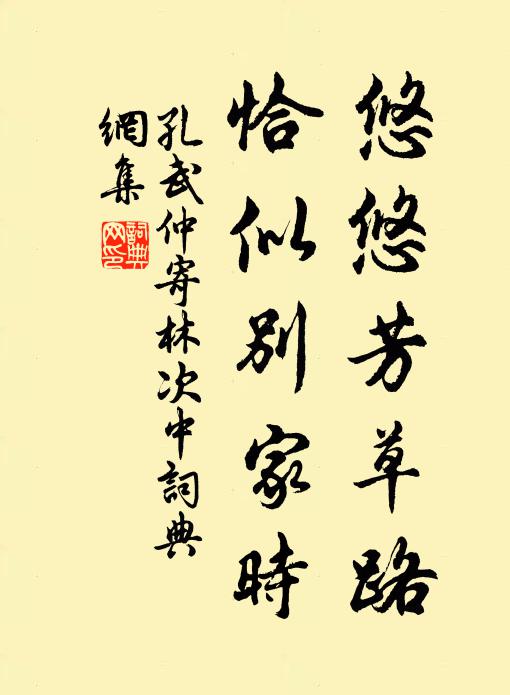 悠悠芳草路
恰似別家時
孔武仲寄林次中詞典
網集
詞典网印